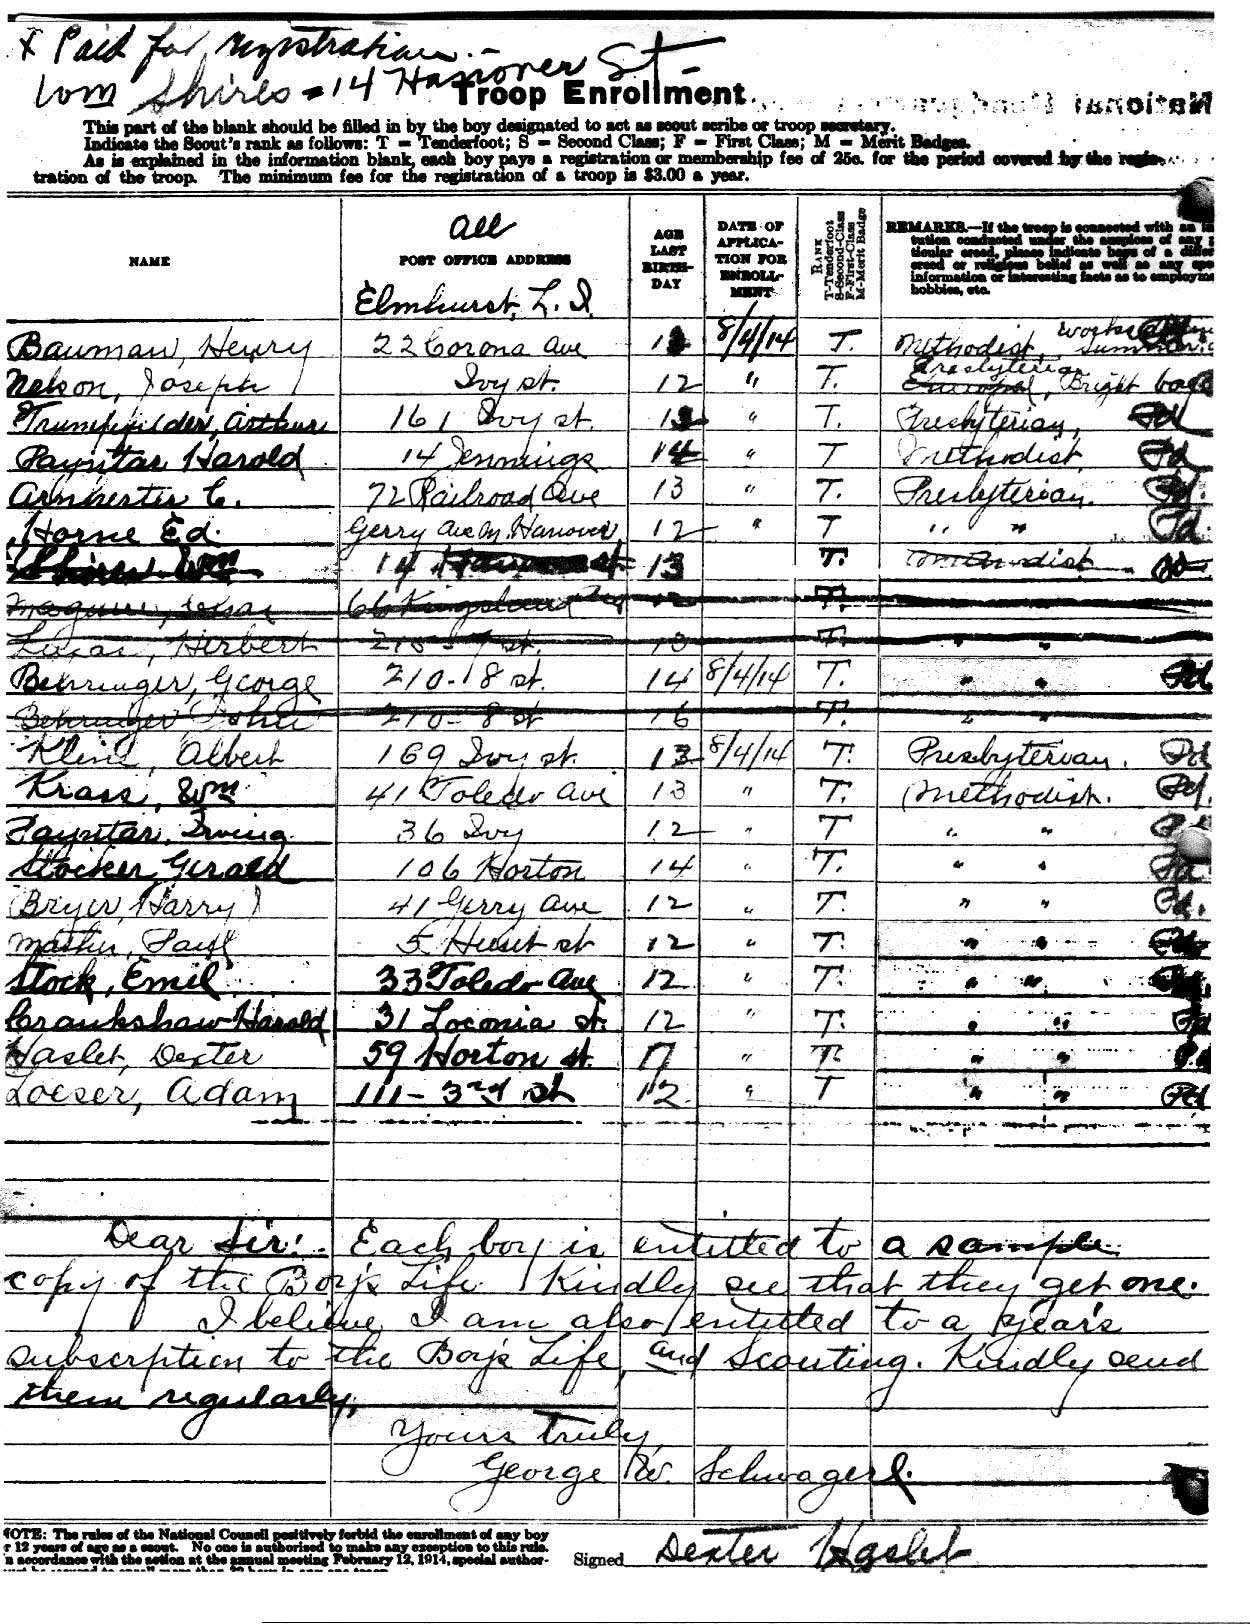 x Paid for registration. -
Wm Shires = 14 Hanover St -
Troop Enrollment
This part of the blank should be filled in by the boy designated to act as scout scribe or troop secretary.
Indicate the Scout's rank as follows: T = Tenderfoot; S = Second Class; F = First Class; M = Merit Badges.
As is explained in the information blank, each boy pays a registration or membership fee of 25c. for the period covered by the regis-
tration of the troop. The minimum fee for the registration of a troop is $3.00 a year.
NAME
All
POST OFFICE ADDRESS
Elmhurst, L. I.
AGE
LAST
BIRTH-
DAY
DATE OF
APPLICA-
TION FOR
ENROLL-
MENT
RANK
T-Tenderfoot
S-Second-Class
F-First-Class
M-Merit Badge
REMARKS.—If the troop is connected with an
tution conducted under the auspices of any
ticular creed, please indicate boys of a
creed or religious belief as well as any
information or interesting facts as to
hobbies, etc.
Bauman, Henry 22 Corona Ave 13 8/4/14 T. Methodist, works
Nelson, Joseph Ivy st. 12 " T. Presbyterian, Bright boy
Arthur 161 Ivy st. " T. Presbyterian, Pd
Payntar Harold 14 Jennings 14 " T Methodist Pd
C. 72 Railroad Ave 13 " T. Presbyterian. Pd.
Horne Ed. Gerry Ave Hanover 12 " T " " Pd.
Shires Wm 14 st 13 T. Methodist Pd
66 Kingsland T.
Herbert st. 13 T. " "
Behringer, George 210-18 st. 14 8/4/14 T. " " Pd
Behringer John 210-8 st 16 T. " "
Kline, Albert 169 Ivy st. 13 8/4/14 T. Presbyterian. Pd
Krass, Wm 41 Toledo Ave 13 " T. Methodist. Pd.
Payntar, Irving 36 Ivy 12 " T " "
Stocker, Gerald 106 Horton 14 " T. " " Pd
Bryer, Harry 41 Gerry Ave 12 " T. " " Pd.
5 Hunt st 12 " T. " "
Stock, Emil 33 Toledo Ave 12 " T. " "
Crankshaw Harold 31 Loconia st. 12 " T. " " Pd
Haslet, Dexter 59 Horton st. 17 " T. " "
Loeser, Adam 111 - 3rd st 12 " T " " Pd
Dear Sir: Each boy is entitled to a sample
copy of the Boy's Life Kindly see that they get one.
I believe I am also entitled to a year's
subscription to the Boy's Life, and Scouting. Kindly send
them regularly,
Yours truly,
George W. Schwagerl.
NOTE: The rules of the National Council positively forbid the enrollment of any boy
12 years of age as a scout. No one is authorised to make any exception to this rule.
accordance with the action at the annual meeting February 12, 1914, special author-
Signed Dexter Haslet